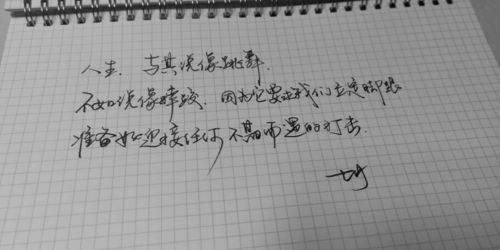 人生，与其说像跳舞，
不如说像摔跤，因为它要求我们立定脚跟
准备好迎接任何不期而遇的打击.